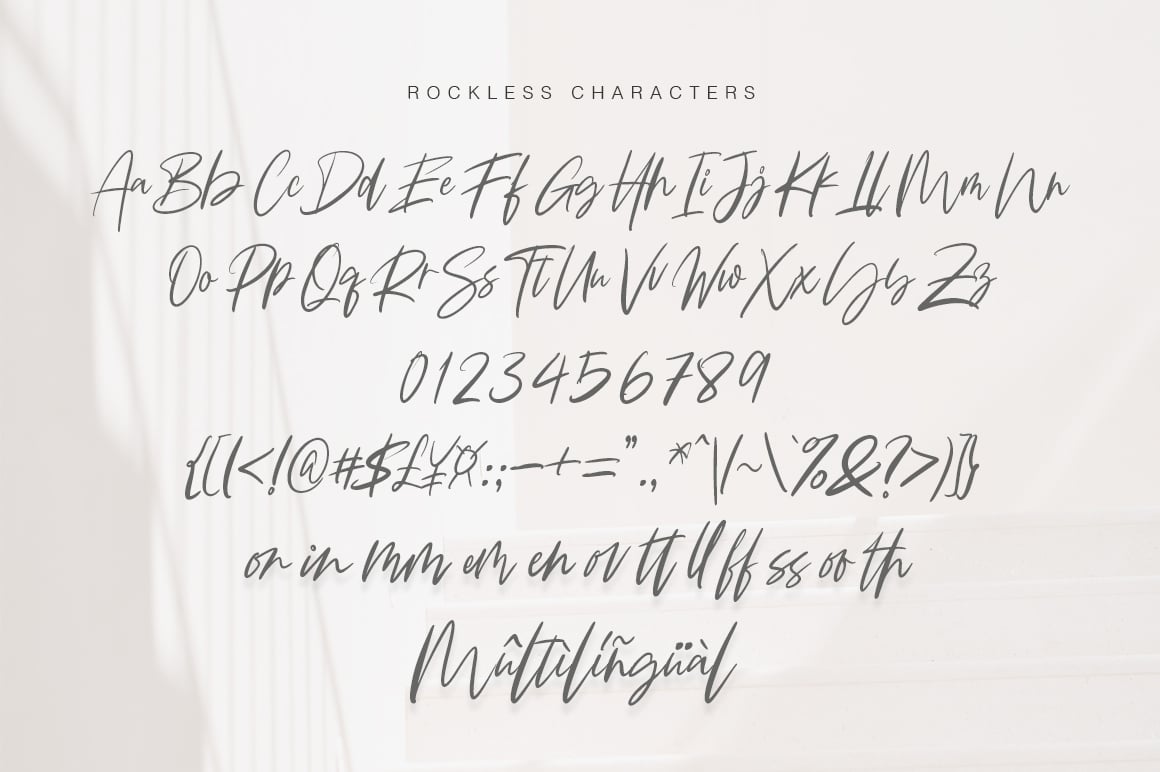 ROCKLESS CHARACTERS
Aa Bb Cc Dd Ee Ff Gg Hh Ii Jj Kk Ll Mm Nn
Oo Pp Qq Rr Ss Tt Uu Vv Ww Xx Yy Zz
0123456789
{[(<!@#$£¥¤:;-+=".,*^|/~\`%&?>)]}
on in mm em en ov tt ll ff ss oo th
Mûltìlíñgüàl